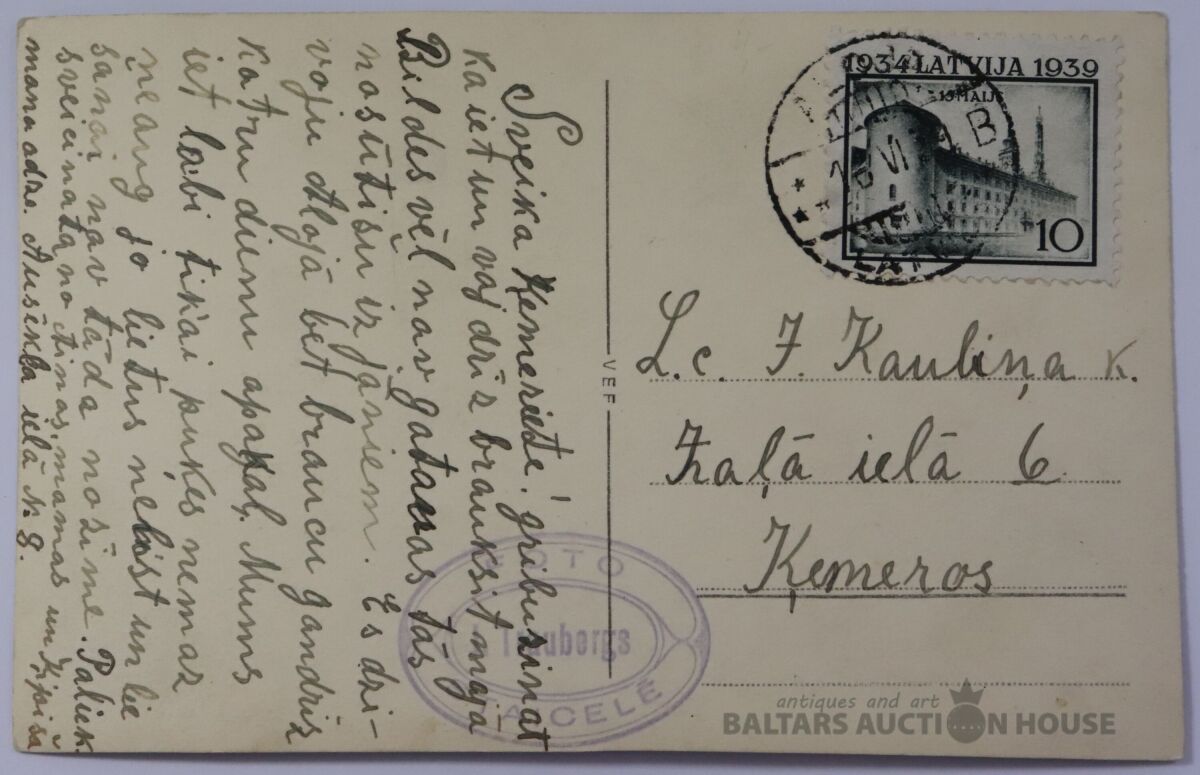 Sveika Ķemeriete! gribu zinat
ka iet un vaj drīz brauksit mājā
Bildes vēl nav gatavas tās
nosūtišu iz jāņiem. Es dzī-
voju Alojā bet braucu gandrīz
katru dienu apakaļ. Mums
iet labi tikai puķes nemaz
neaug jo lietus nelīst un lie
sanai nav tāda nozīme. Paliek
sveicinata no mamas un
mana adre. Ausekļa ielā N. 8.
1934 LATVIJA 1939
15 MAIJS
10
B
VI
VEF
L.c. J. Kauliņa k.
Zaļā ielā 6
Ķemeros
FOTO
Traubergs
antiques and art
BALTARS AUCTION HOUSE